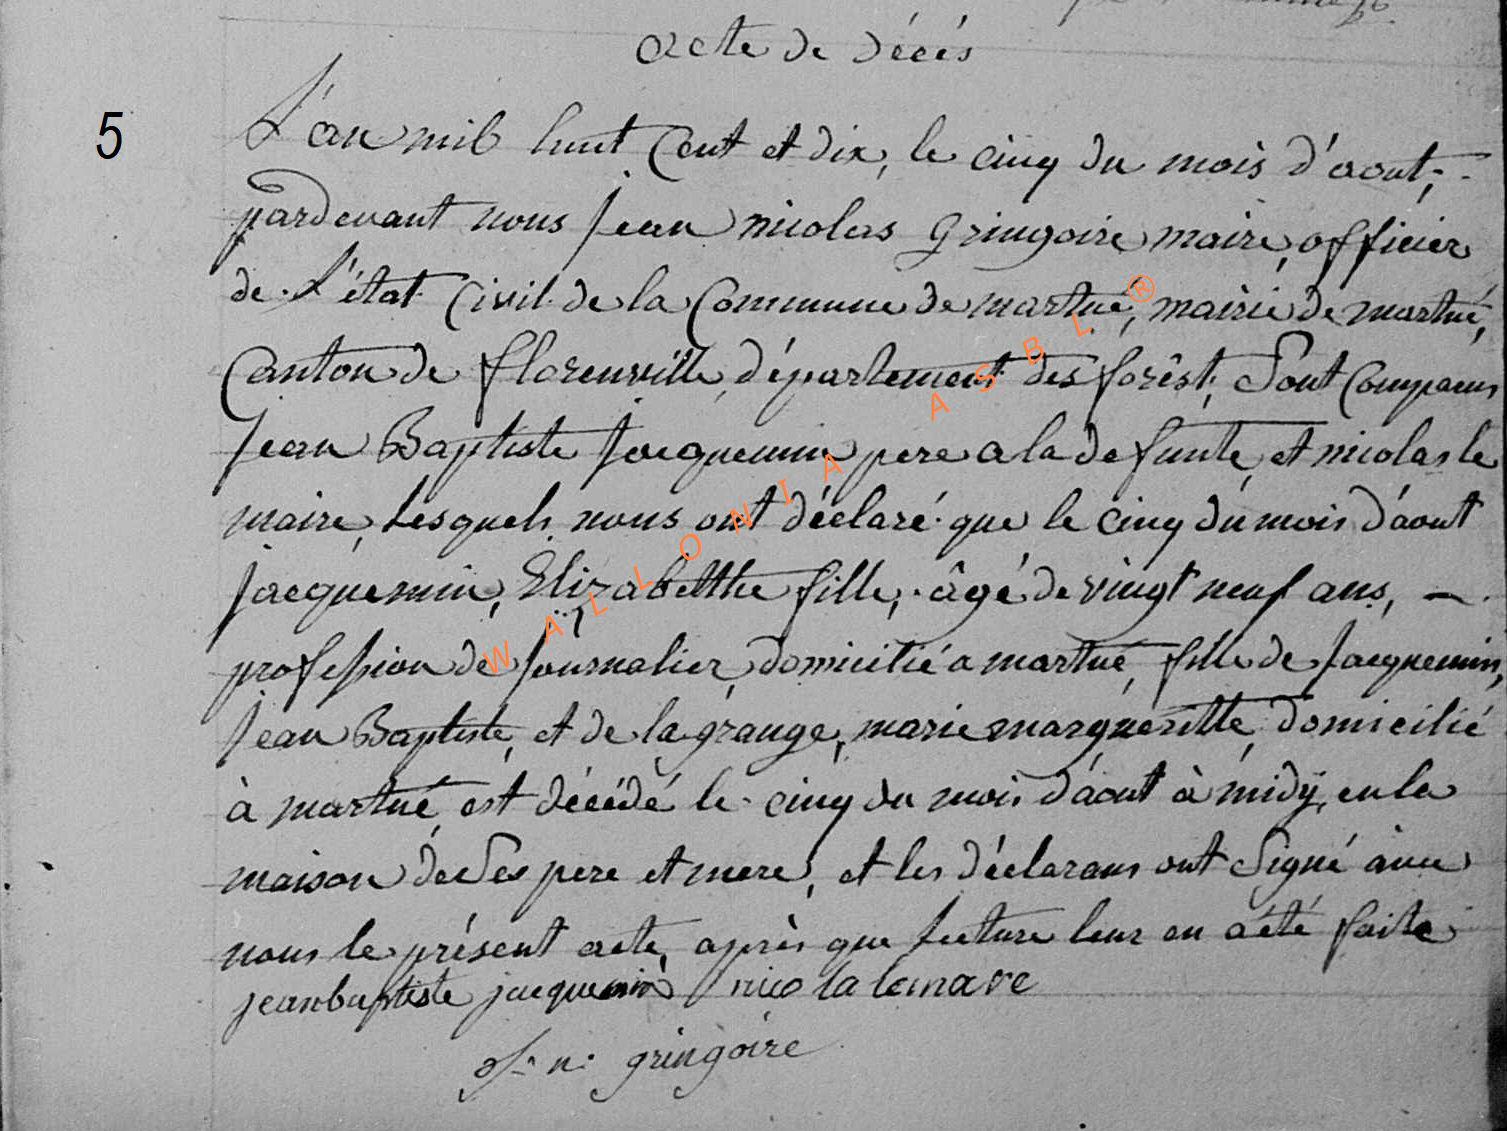 acte de décès
5
L'an mil huit Cent et dix, le cinq du mois d'aout,
pardevant nous jean nicolas gringoire maire, officier
de L'état Civil de la Commune de martué, mairie de martué,
Canton de florenville, département des forêst, Sont Comparus
jean Baptiste jacquemin pere a la defunte, et nicolas le
maire, Lesquels nous ont déclaré que le cinq du mois d'aout
jacquemin, Elizabetthe fille, âgé de vingt neuf ans,
profession de journalier, domicilié a martué, fille de jacquemin,
jean Baptiste, et de la grange, marie margueritte, domicilié
à martué, est décédé le cinq du mois d'aout à midÿ, en la
maison de Ses pere et mere, et les déclarans ont Signé avec
nous le présent acte, après que lecture leur en a été faite
jeanbaptiste jacquemin nicola lemare
j: n: gringoire
WALLONIA ASBL ®